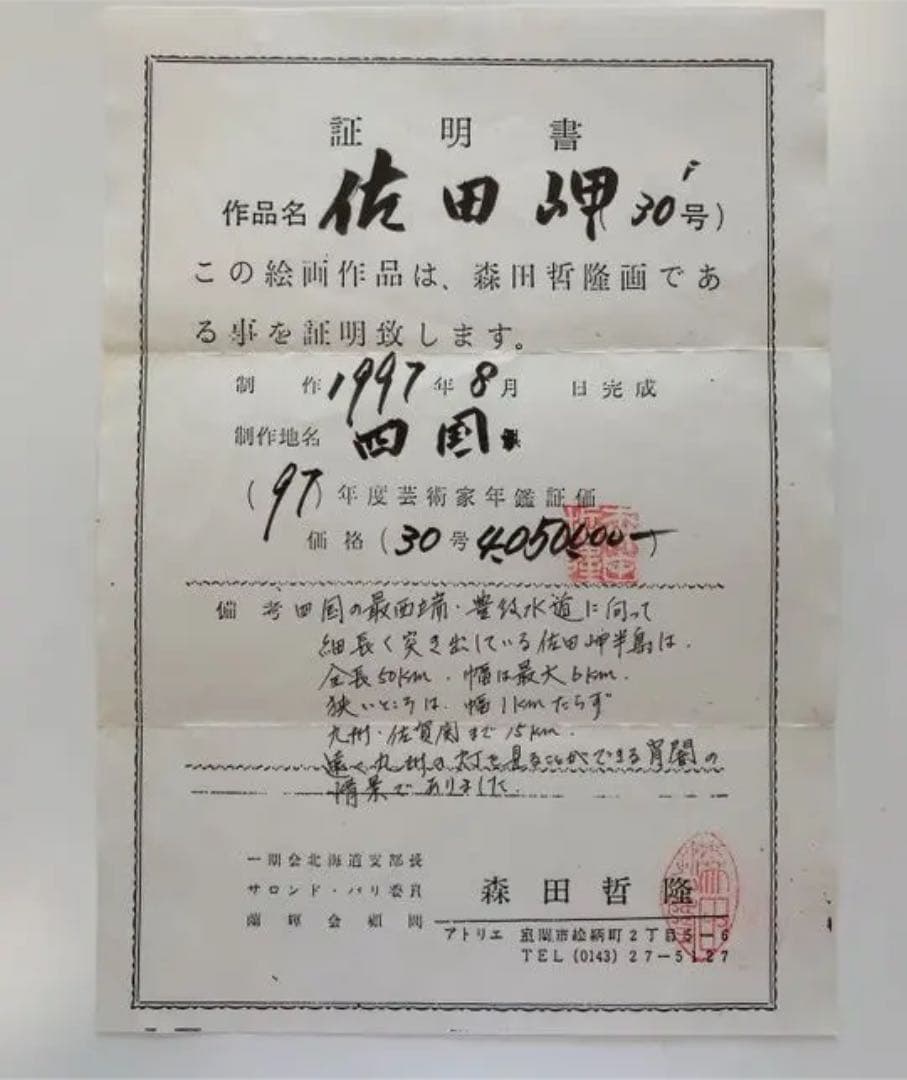 証明書
作品名 佐田岬(30F号)
この絵画作品は、森田哲隆画であ
る事を証明致します。
制作1997年8月 日完成
制作地名 四国
(97)年度芸術家年鑑証価
価格(30号4,050,000ー)
備考 四国の最西端・豊後水道に向って
細長く突き出している佐田岬半島は、
全長50km、幅は最大6km、
狭いところは、幅1kmたらず
九州・佐賀関まで15km、
遠く九州の灯を見ることができる宵闇の
情景でありました。
一期会北海道支部長
サロンド・パリ委員
顧問
森田哲隆
アトリエ 室蘭市絵鞆町2丁目5-6
TEL(0143)27-5127